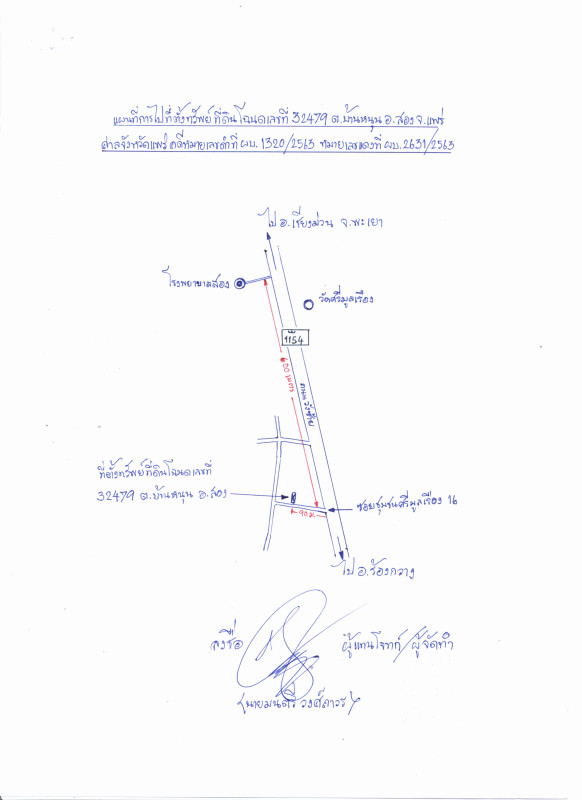 แผนที่การไปที่ตั้งทรัพย์ ที่ดินโฉนดเลขที่ 32479 ต.บ้านหนุน อ.สอง จ.แพร่
ศาลจังหวัดแพร่ คดีหมายเลขดำที่ ผบ. 1320/2563 หมายเลขแดงที่ ผบ. 2631/2563
ไป อ.เชียงม่วน จ.พะเยา
โรงพยาบาลสอง
วัดศรีมูลเรือง
1154
600 เมตร
ถนน
ที่ตั้งทรัพย์ที่ดินโฉนดเลขที่
32479 ต.บ้านหนุน อ.สอง
90 ม.
ซอยชุมชนศรีมูลเรือง 16
ไป อ.ร้องกวาง
ลงชื่อ ผู้แทนโจทก์/ผู้จัดทำ
(นายมนตรี วงศ์ถาวร)